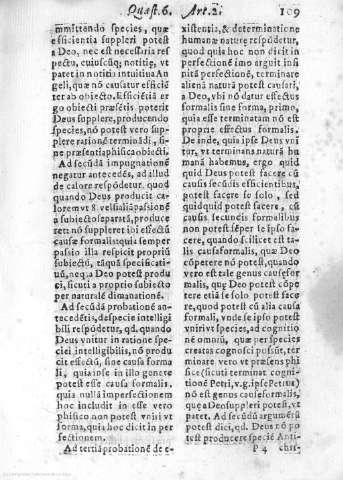 Quæst. 6. Art. 2. 109
mmittendo species, quæ
efficientia suppleri potest
a Deo, nec est necessaria res
pectu, cuiuscũq; notitiæ, vt
patet in notitia intuitiua An
geli, quæ nõ causatur efficiẽ
ter ab obiecto. Efficiẽtiã er
go obiecti præsẽtis poterit
Deus supplere, producendo
species, nõ potest vero sup-
plere rationẽ terminãdi, si-
ne præsentia phisica obiecti.
Ad secũdã impugnationẽ
negatur antecedẽs, ad illud
de calore respõdetur, quod
quando Deus producit ca
lorem vt 8. vel saliã passionẽ
a subiecto separatã, produce
ret nõ suppleret ibi effectũ
causæ formalis: quia semper
passio illa respicit proprium
subiectũ, tãquã specificati-
uũ, neq. a Deo potest produ
ci, sicuti a proprio subiecto
per naturalẽ dimanationẽ.
Ad secũdã probationẽ an-
tecedẽtis, da specie intelligi
bili respõdetur, qd. quando
Deus vnitur in ratione spe-
ciei intelligibilis, nõ produ
cit effectũ, sine causa forma
li, quia ipse in illo genere
potest esse causa formalis.
quia nullã imperfectionem
hoc includit in esse vero
phisico non potest vniri vt
forma, quia hoc dicit im per
fectionem.
Ad tertiã probationẽ de e-
xistentia, & determinatione
humanæ naturę respõdetur,
quod quia hoc non dicit im
perfectionẽ imo arguit infi
nitã perfectionẽ, terminare
alienã naturã potest causari,
a Deo, vbi nõ datur effectus
formalis sine forma, primo,
quia esse terminatam nõ est
proprie effectus formalis.
De inde, quia ipse Deus vni
tur, vt terminans naturã hu
manã habemus, ergo quid
quid Deus potest facere cũ
causis secũdis efficientibus,
potest facere se solo, sed
quidquid potest facere, cũ
causis secundis formalibus
non potest sẽper se ipso fa-
cere, quando s. illicet est ta-
lis causa formalis, quæ Deo
cõpetere nõ potest, quando
vero est tale genus causæ for
malis, quę Deo potest cõpe
tere etiã se solo potest face
re, quod potest cũ alia causa
formali, vnde se ipso potest
vniri vt species, ad cognitio
nẽ omniũ, quæ per species
creatas cognosci possũt, ter
minare vero vt præsens phi
sice (sicuti terminat cogni-
tionẽ Petri, v.g. ipse Petrus)
nõ est genus causæ formalis,
quæ a Deo suppleri potest, vt
patet. Ad secũdũ argumẽtũ
potest dici, qd. Deus nõ po
test producere speciẽ Anti-
P 4 chris-